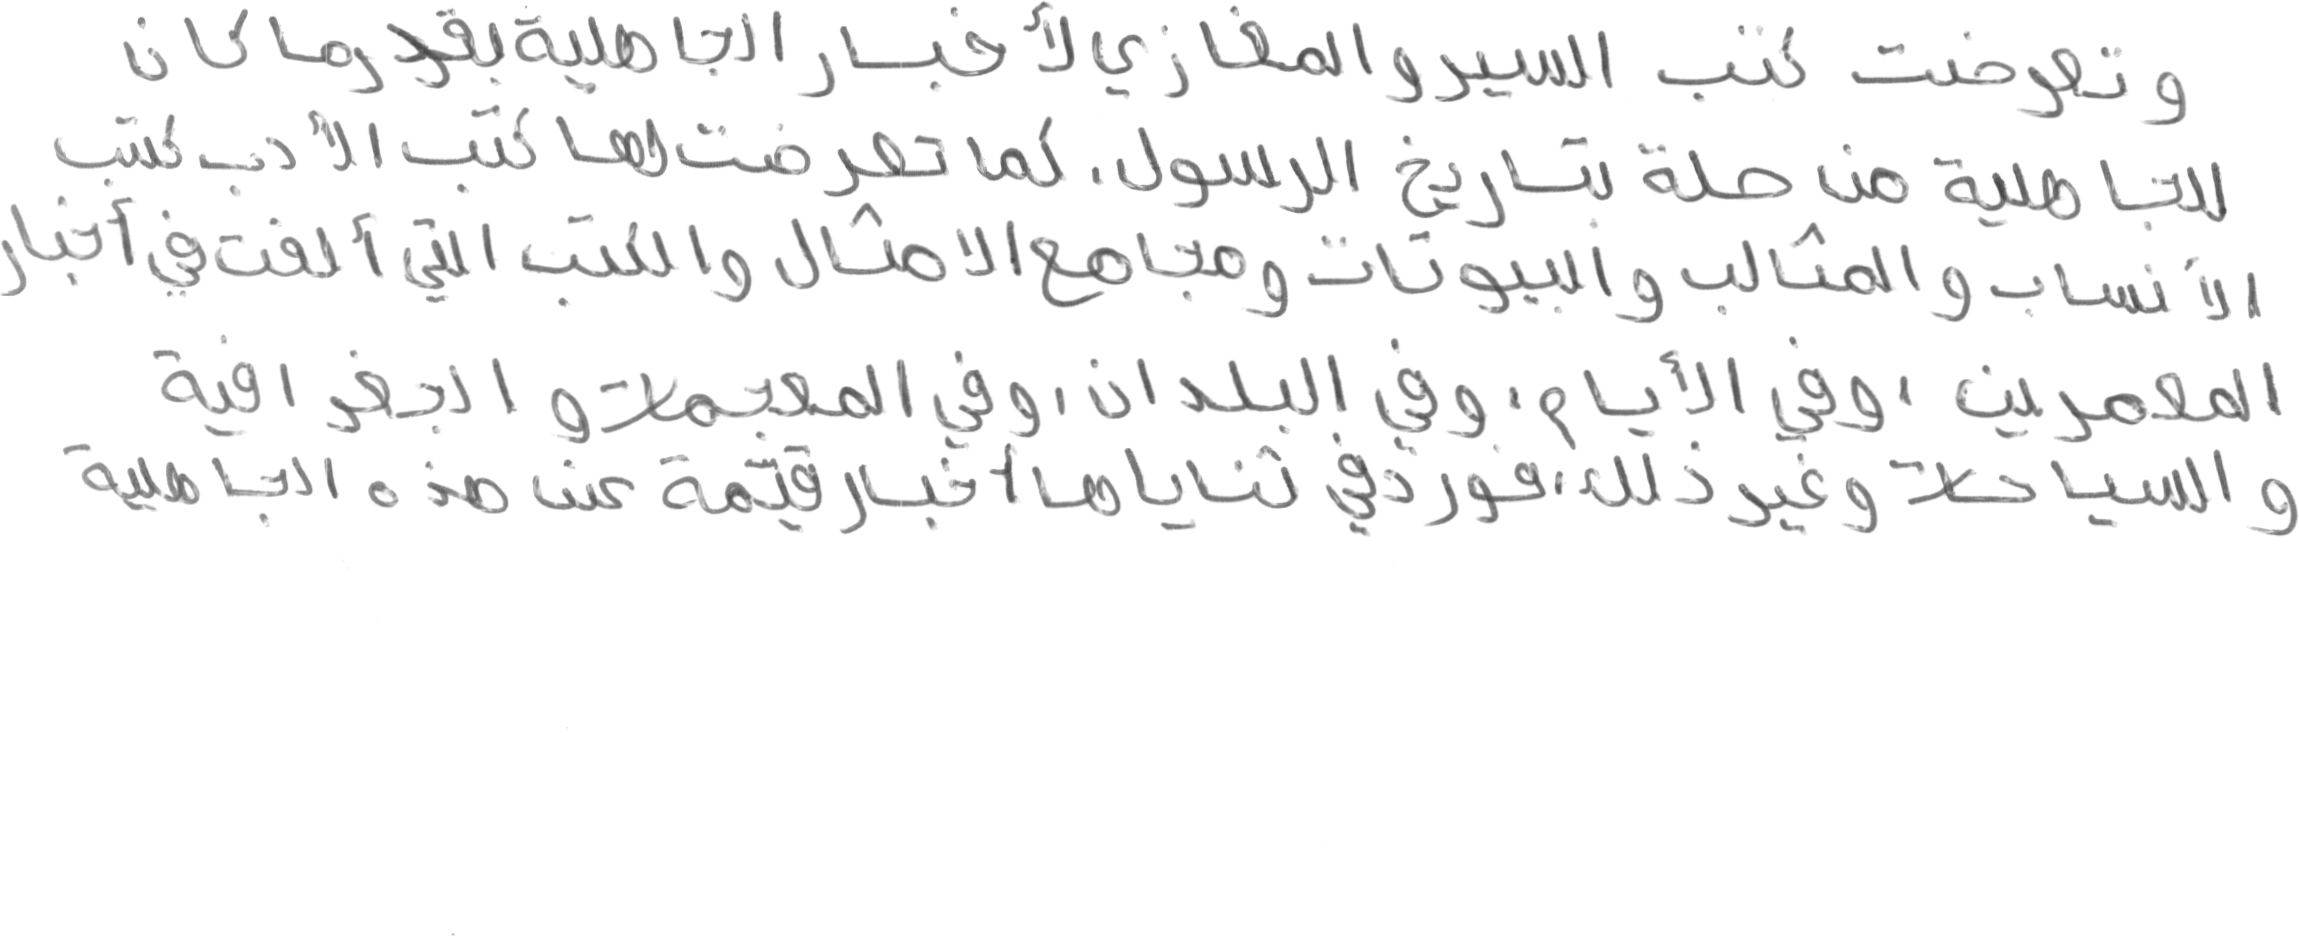 وتعرضت كتب السير والمغازي لأخبار الجاهلية بقدر ما كان
للجاهلية من صلة بتاريخ الرسول. كما تعرضت لها كتب الأدب كتب
الأنساب والمثالب والبيوتات ومجامع الامثال والكتب التي ألفت في أخبار
المعمرين، وفي الأيام، وفي البلدان، وفي المعجمات والجغرافية
والسياحات وغير ذلك، فورد في ثناياها أخبار قيّمة عن هذه الجاهلية